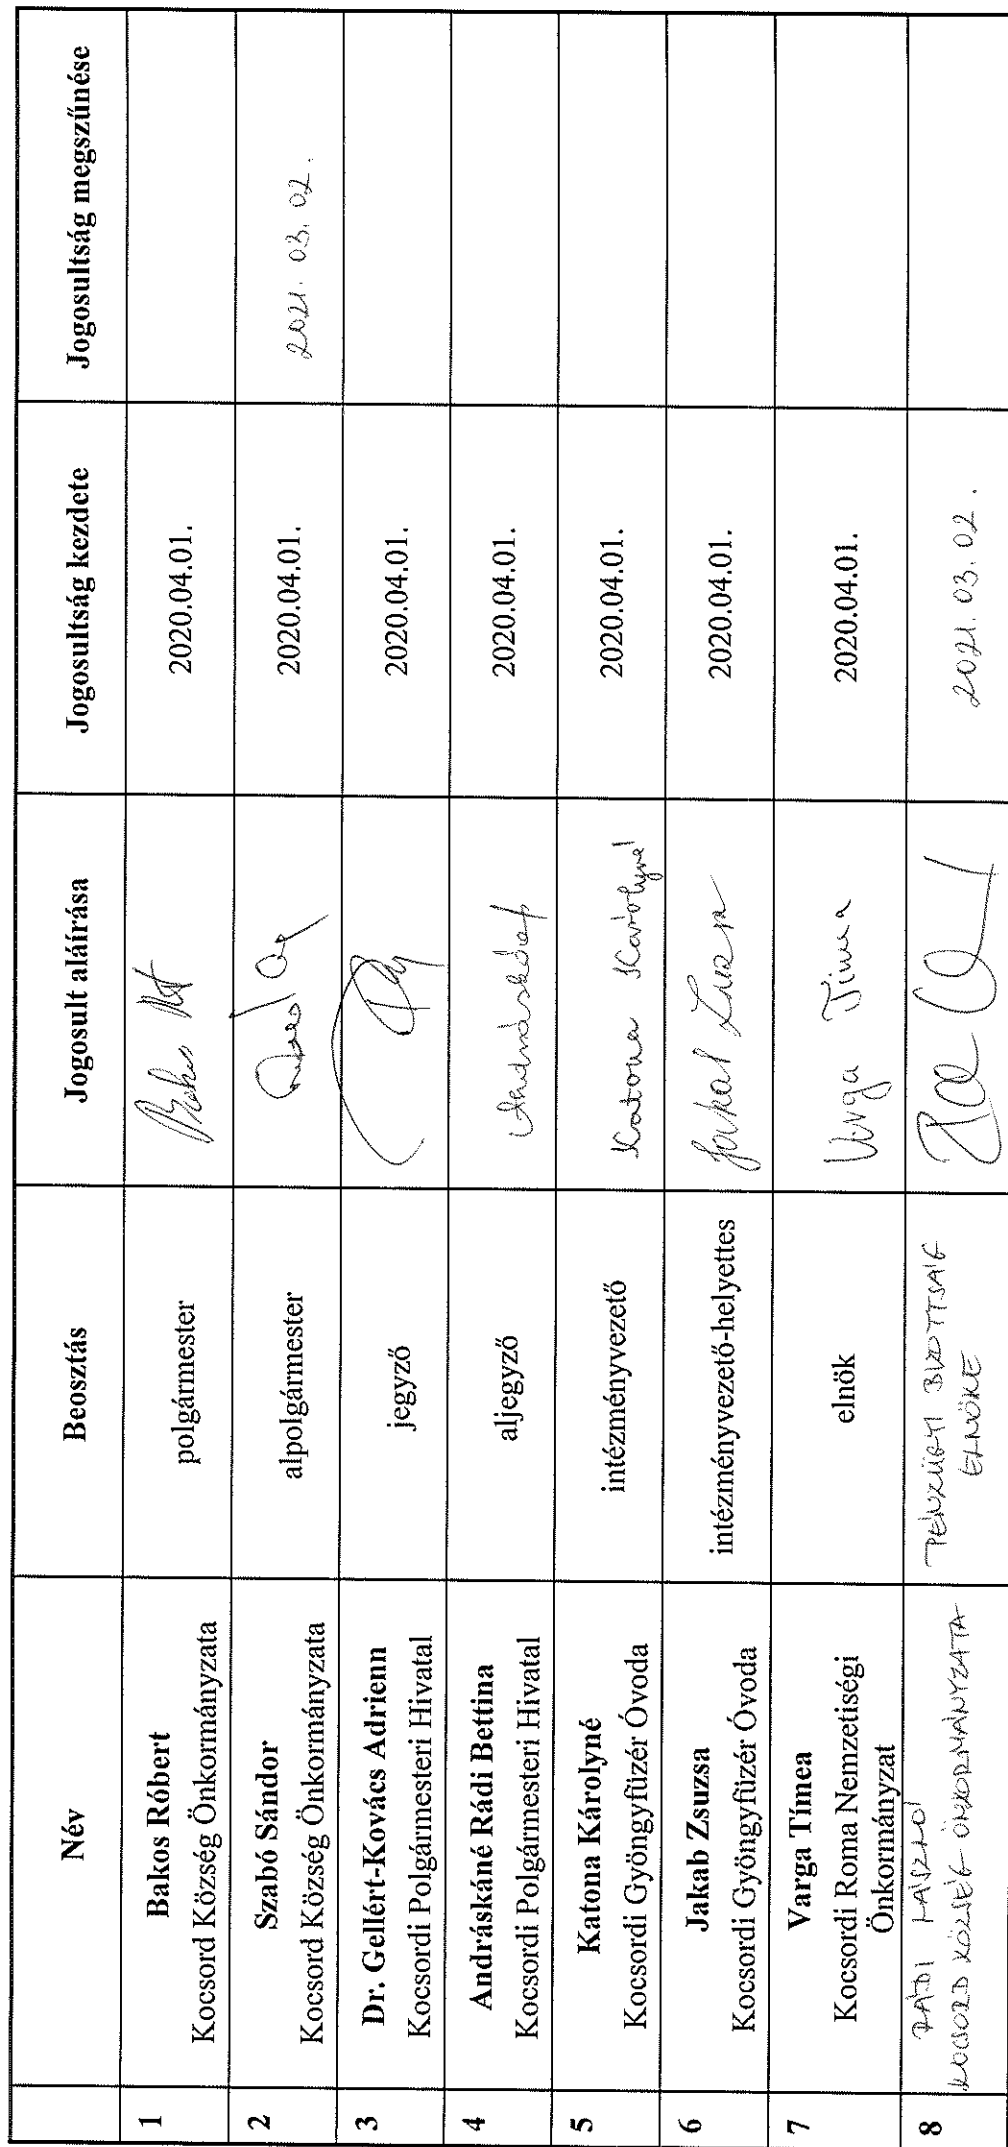 Név Beosztás Jogosult aláírása Jogosultság kezdete Jogosultság megszűnése
1 Bakos Róbert
Kocsord Község Önkormányzata
polgármester
2020.04.01.
2 Szabó Sándor
Kocsord Község Önkormányzata
alpolgármester
2020.04.01.
2021. 03. 02.
3 Dr. Gellért-Kovács Adrienn
Kocsordi Polgármesteri Hivatal
jegyző
2020.04.01.
4 Andráskáné Rádi Bettina
Kocsordi Polgármesteri Hivatal
aljegyző
2020.04.01.
5 Katona Károlyné
Kocsordi Gyöngyfűzér Óvoda
intézményvezető
Katona Károlyné
2020.04.01.
6 Jakab Zsuzsa
Kocsordi Gyöngyfűzér Óvoda
intézményvezető-helyettes
2020.04.01.
7 Varga Tímea
Kocsordi Roma Nemzetiségi
Önkormányzat
elnök
Varga Tímea
2020.04.01.
8 RÁDI LÁSZLÓ
KOCSORD KÖZSÉG ÖNKORMÁNYZATA
PÉNZÜGYI BIZOTTSÁG
ELNÖKE
2021. 03. 02.